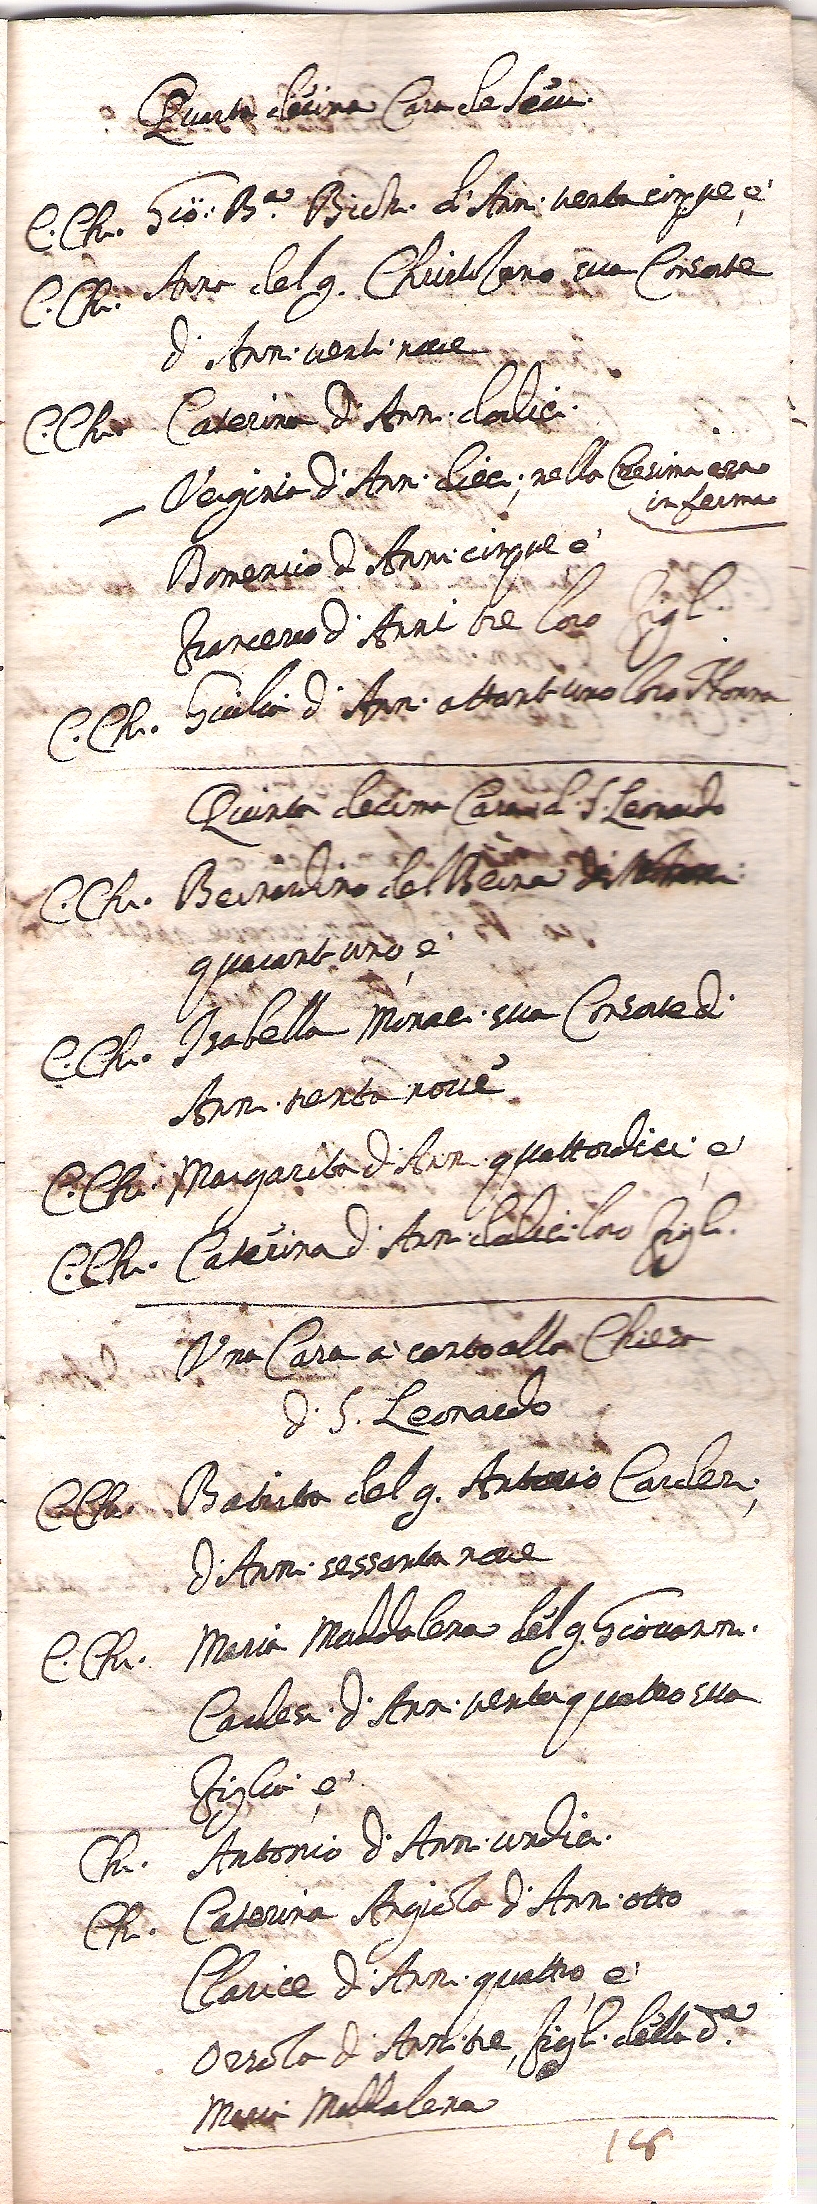 Quarta decima Casa de
C. Ch. Gio: Ba. Bich. d'Ann. trentacinque, e
C. Ch. Anna del q. Christofano sua Consorte
d'Ann. vent. nove
C. Ch. Caterina d'Ann. dodici.
Verginia d'Ann. dieci, nella Cresima era
inferma
Domenico d'Anni cinque, e
Francesco d'Anni tre loro figl.
C. Ch. Giulia d'Ann. ottant'uno loro Nonna
Quinta decima Casa d. S. Leonardo
C. Ch. Bernardino del
quarant'uno, e
C. Ch. Isabella sua Consorte di
Ann. trenta nove
C. Ch. Margarita d'Ann. quattordici, e
C. Ch. Caterina d'Ann. dodici loro figl.
Una Casa a canto alla Chiesa
d. S. Leonardo
C. Ch. Batista del q. Antonio Cardesi,
d'Ann. sessanta nove
C. Ch. Maria Maddalena del q. Giovann.
Cardesi d'Ann. trenta quattro sua
figlia, e
Ch. Antonio d'Ann. undici.
Ch. Caterina Angiola d'Ann. otto
Clarice d'Ann. quattro, e
Orsola d'Ann. tre, figl. della da.
Maria Maddalena